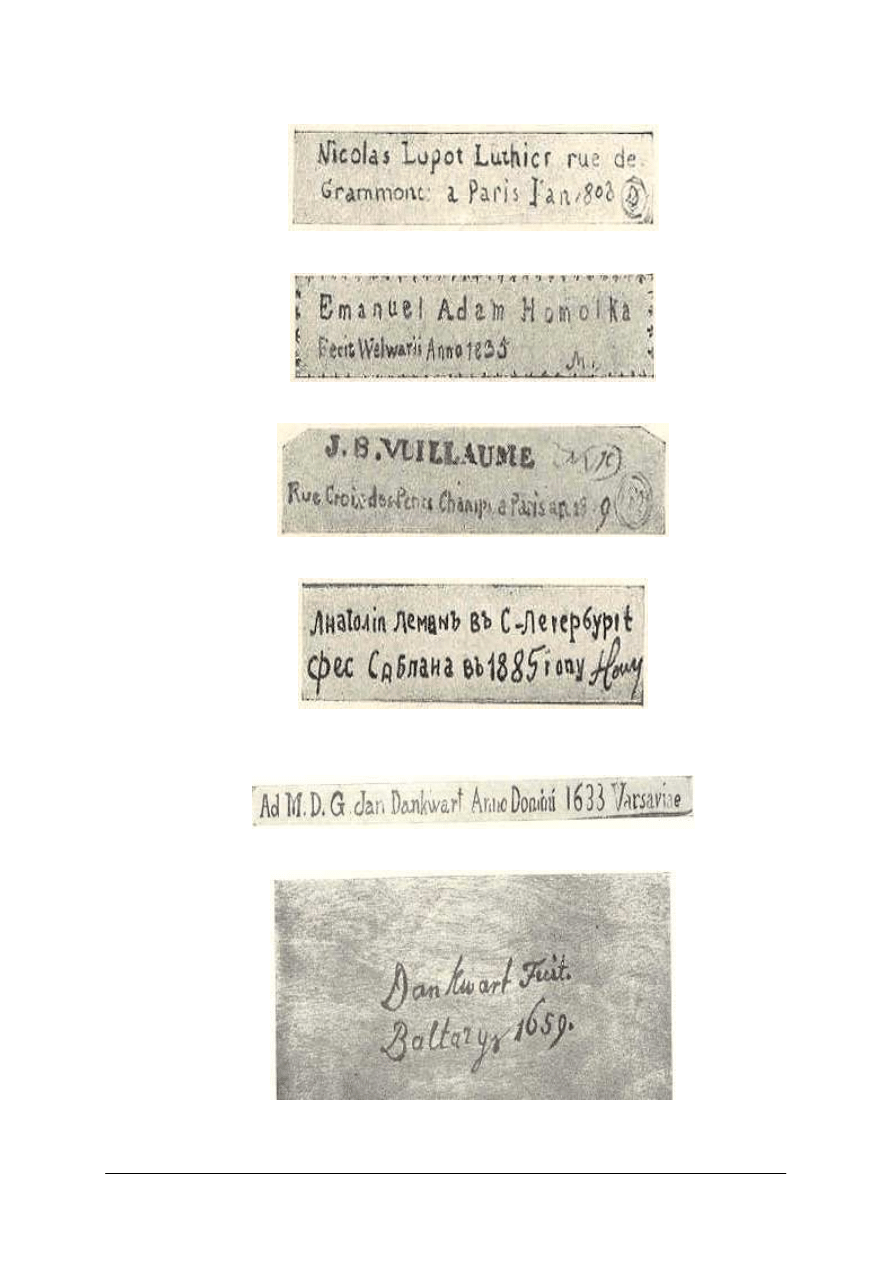 Nicolas Lupot Luthier rue de
Grammont: a Paris l'an 1803
Emanuel Adam Homolka
Fecit Welwarii Anno 1835
J. B. VUILLAUME
Rue Croix des Petits Champs a Paris
Анатолiй Леманъ въ С-Петербургѣ
въ 1885 году
Ad M. D. G. Jan Dankwart Anno Domini 1633 Varsaviae
Dankwart
Baltazyz 1659.